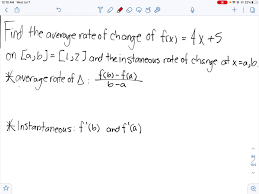 12:10 AM Wed Jul 7
Find the average rate of change of f(x) = 4x+5
on [a,b] = [1,2] and the instaneous rate of change at x=a,b.
* average rate of Δ: f(b)-f(a)
b-a
* Instantaneous: f'(b) and f'(a)